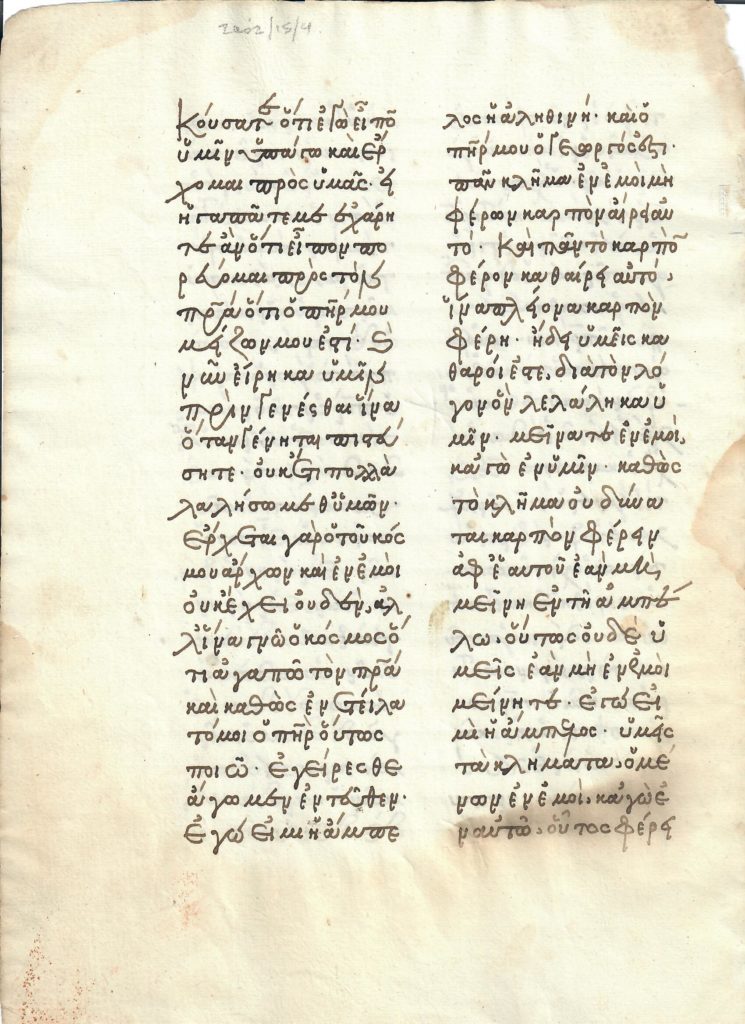 κούσατε ὅτι ἐγὼ εἶπο
ὑμῖν ὑπάγω καὶ ἔρ
χομαι πρὸς ὑμᾶς· εἰ
ἠγαπᾶτε με ἐχάρη
τε ἂν ὅτι εἶπον πο
ρεύομαι πρὸς τὸν
πρ̅α ὅτι ὁ πη̅ρ μου
μείζων μου ἐστί·
νῦν εἴρηκα ὑμῖν
πρὶν γενέσθαι ἵνα
ὅταν γένηται πιστεύ
σητε. οὐκέτι πολλὰ
λαλήσω μεθ ὑμῶν·
ἔρχεται γὰρ ὁ τοῦ κός
μου ἄρχων καὶ ἐν ἐμοὶ
οὐκ ἔχει οὐδέν, ἀλ
λ ἵνα γνῶ ὁ κόσμος ὅ
τι ἀγαπῶ τὸν πρ̅α
καὶ καθὼς ἐντείλα
τό μοι ὁ πη̅ρ οὕτως
ποιῶ· ἐγείρεσθε
ἄγωμεν ἐντεῦθεν·
Ἐγώ εἰμι ἡ ἄμπε
λος ἡ ἀληθινή· καὶ ὁ
πη̅ρ μου ὁ γεωργός ἐστι·
πᾶν κλῆμα ἐν ἐμοὶ μὴ
φέρων καρπὸν αἴρει αὐ
τό· Καὶ πᾶν τὸ καρπὸ
φέρον καθαίρει αὐτό,
ἵνα πλείονα καρπὸν
φέρη· ἤδε ὑμεῖς κα
θαροί ἐστε, διὰ τὸν λό
γον ὃν λελάληκα ὑ
μῖν· μείνατε ἐν ἐμοὶ,
καγὼ ἐν ὑμῖν· καθὼς
τὸ κλῆμα οὐ δύνα
ται καρπὸν φέρειν
ἀφ ἑαυτοῦ ἐὰν μὴ,
μείνη ἐν τῆ ἀμπέ
λω, οὕτως οὐδὲ ὑ
μεῖς ἐὰν μὴ ἐν ἐμοὶ
μείνητε· ἐγώ εἰ
μὶ ἡ ἄμπελος· ὑμεῖς
τὰ κλήματα, ὁ μέ
νων ἐν ἐμοὶ, καγὼ ἐ
ν αὐτῶ, οὗτος φέρει